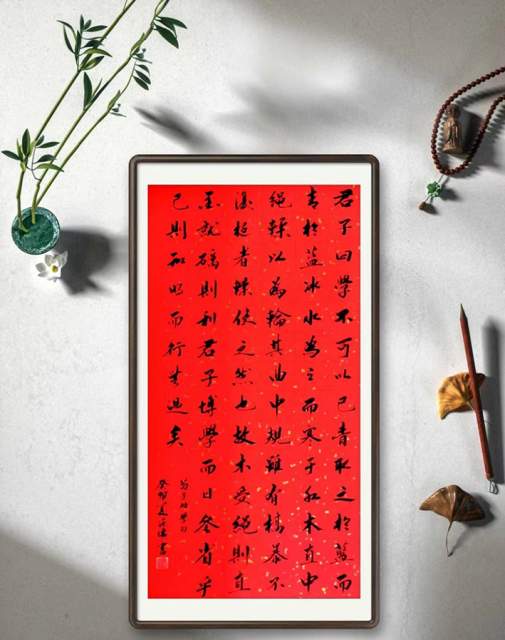 君子曰學不可以已青取之於藍而
青於蓝冰水為之而寒于水木直中
繩輮以為輪其曲中規雖有槁暴不
復挺者輮使之然也故木受繩則直
金就礪則利君子博學而日參省乎
己則知明而行無過矣
荀子劝學
癸卯夏書